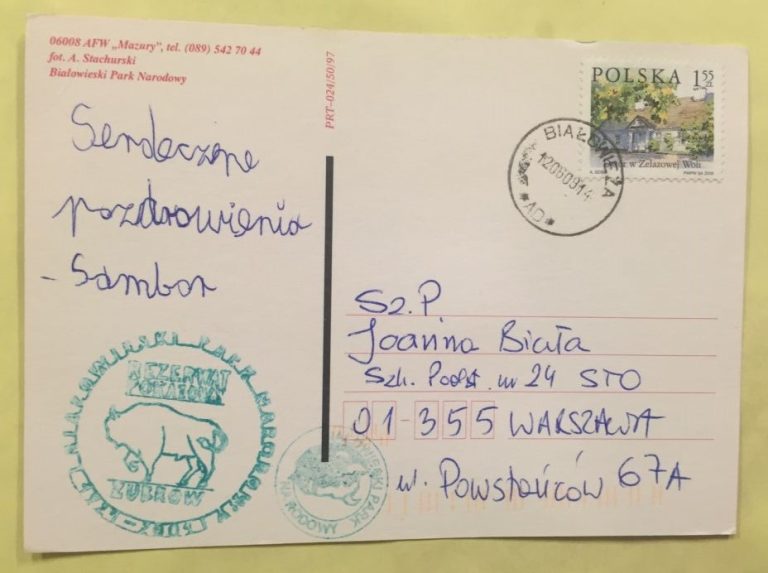 06008 AFW „Mazury”, tel. (089) 542 70 44
fot. A. Stachurski
Białowieski Park Narodowy
PRT-024/50/97
Serdeczne
pozdrowienia
- Sambor
POLSKA 1 55 zł
w Żelazowej Woli
BIAŁOWIEŻA
120609 14
*AD*
Sz. P.
Joanna Biała
Szk. Podst. nr 24 STO
01-355 WARSZAWA
ul. Powstańców 67A
REZERWAT
POKAZOWY
ŻUBRÓW
PARK NARODOWY
PARK